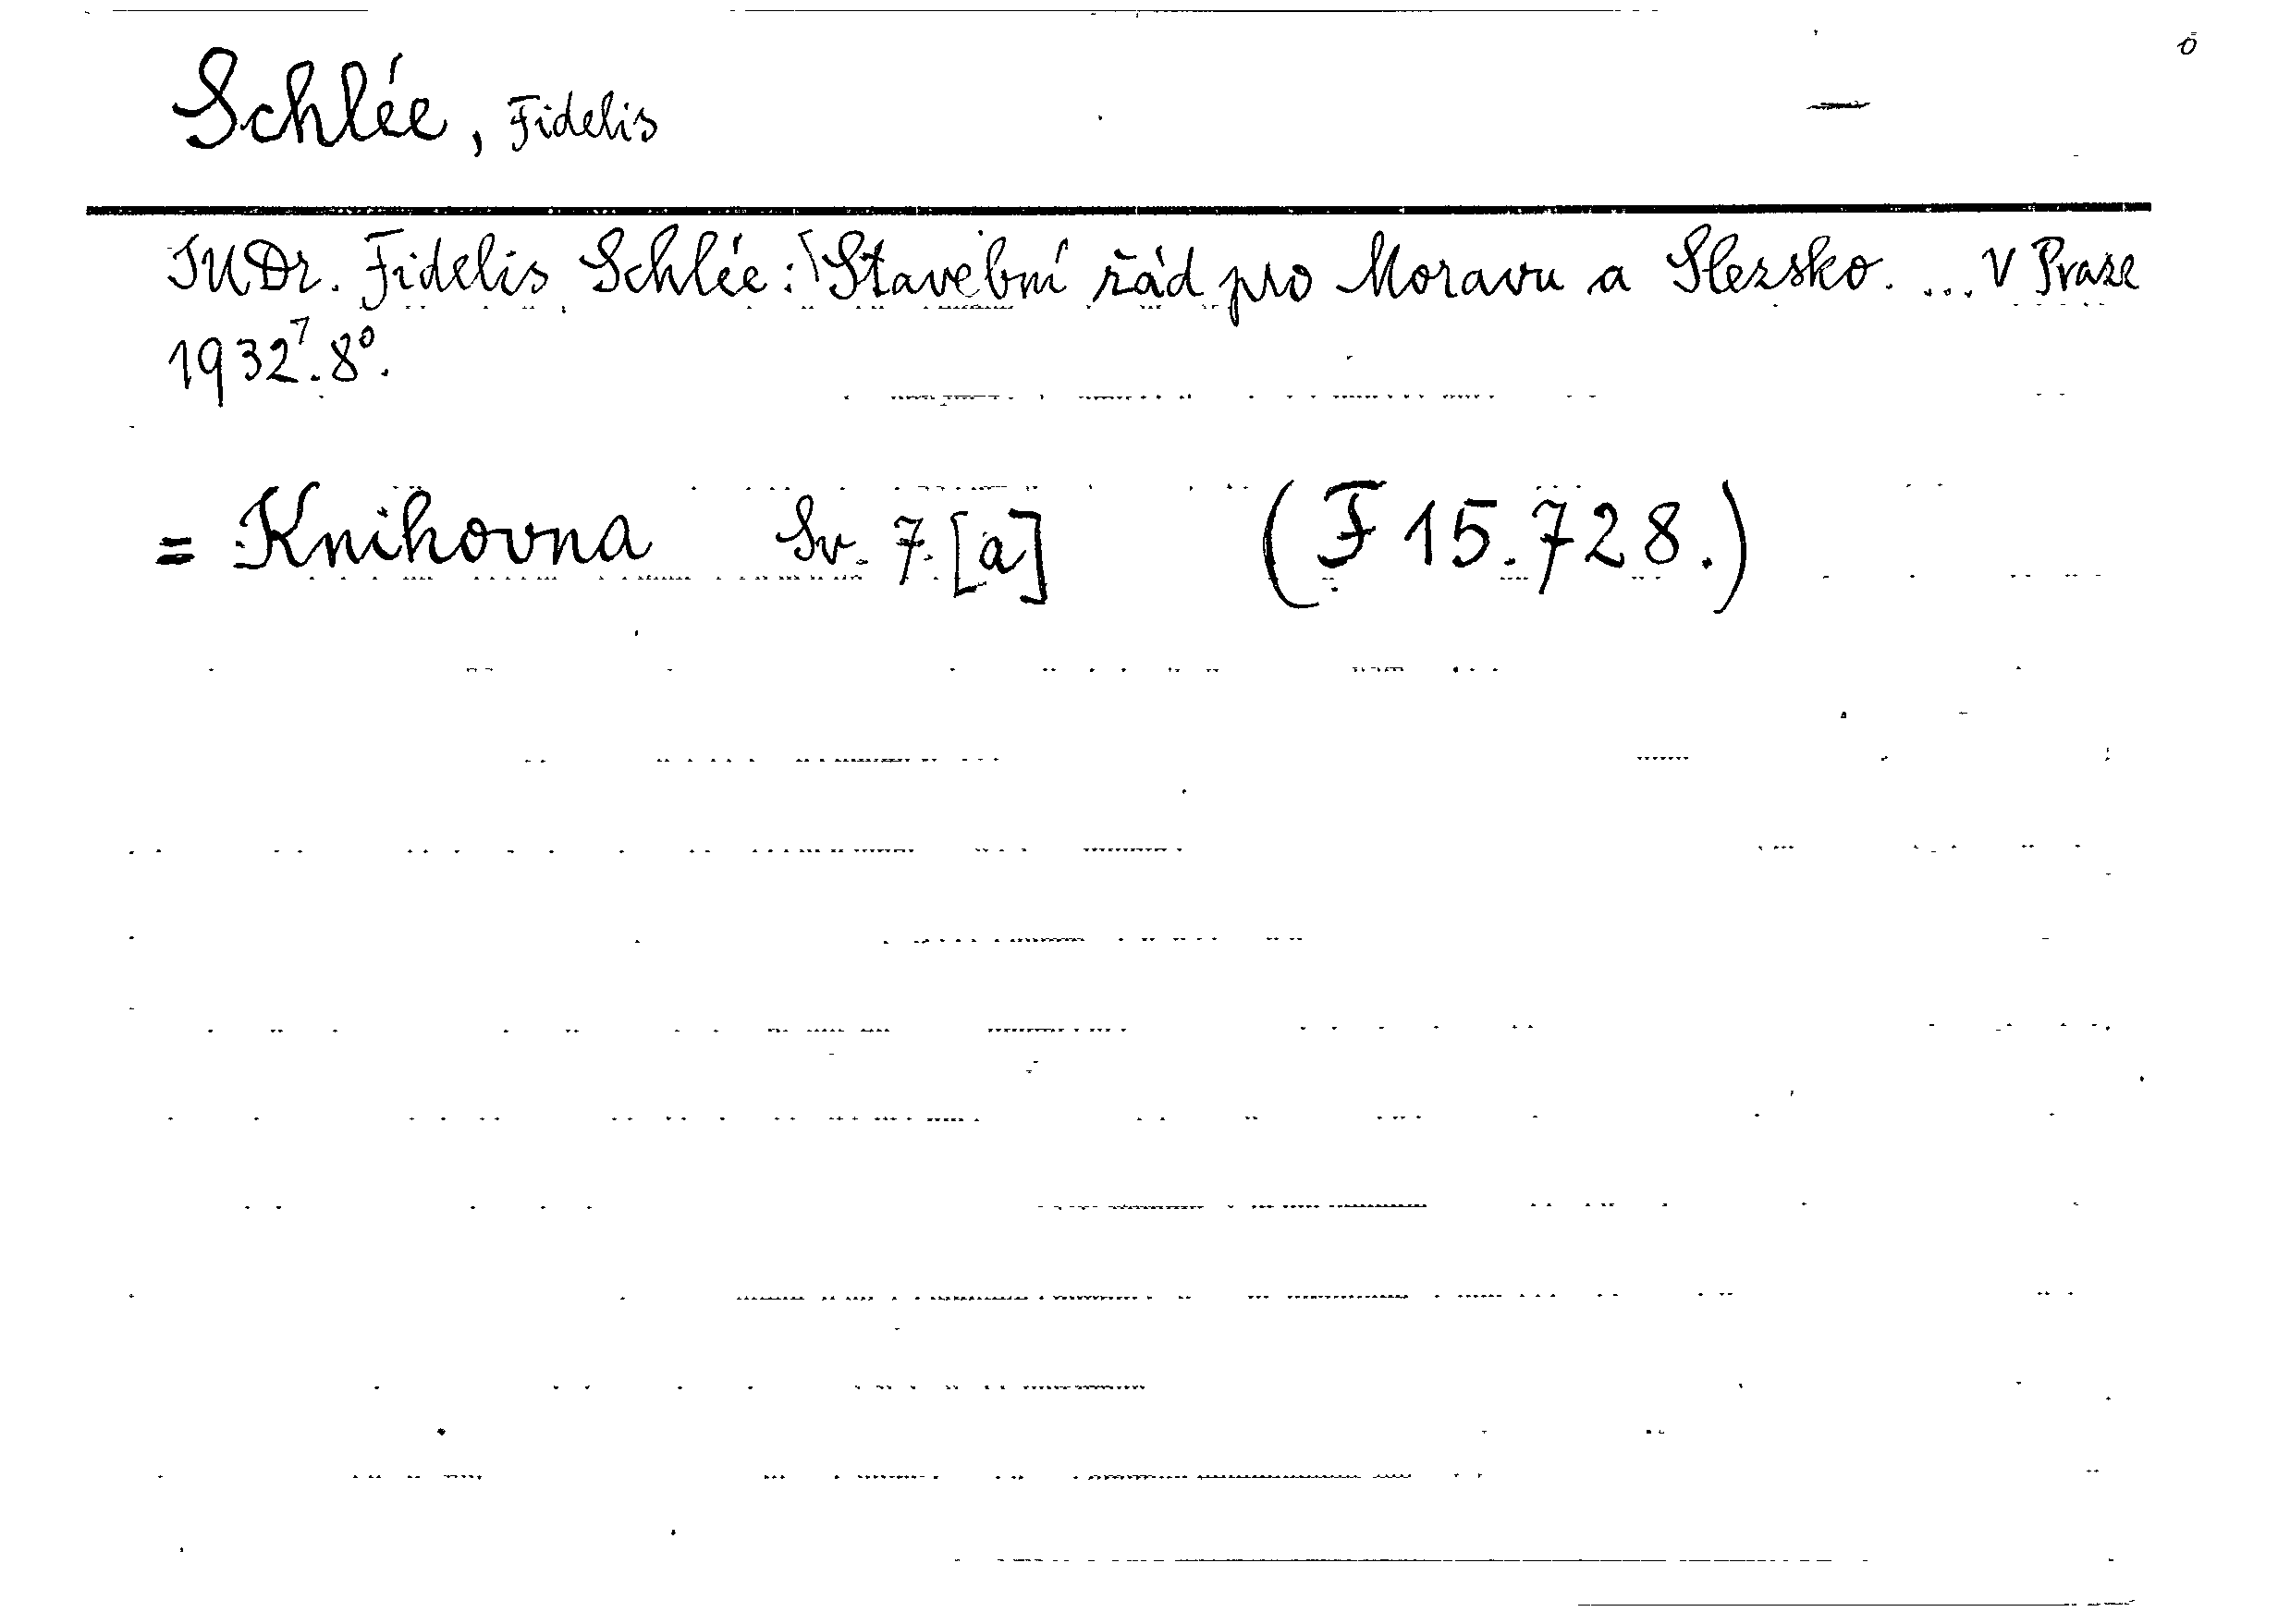 Schlée, Fidelis
JUDr. Fidelis Schlée: [Stavební řád pro Moravu a Slezsko. ... V Praze
1932⌉. 8⁰.
= Knihovna Sv. 7. [a] (F 15.728.)